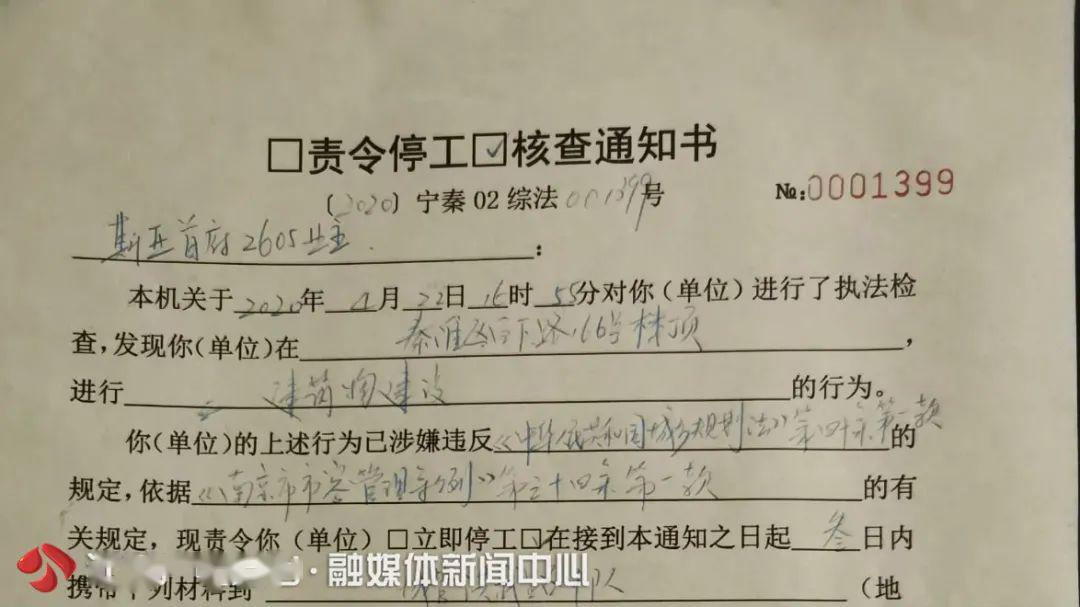 □责令停工☑核查通知书
〔2020〕宁秦02综法001399号
№:0001399
斯亚首府2605业主:
本机关于2020年4月22日16时55分对你(单位)进行了执法检
查,发现你(单位)在秦淮区白下路166号楼顶,
进行建筑物建设的行为。
你(单位)的上述行为已涉嫌违反《中华人民共和国城乡规划法》第四十条第一款的
规定,依据《南京市市容管理条例》第三十四条第一款的有
关规定,现责令你(单位)□立即停工☑在接到本通知之日起叁日内
携带下列材料到 (地
·融媒体新闻中心